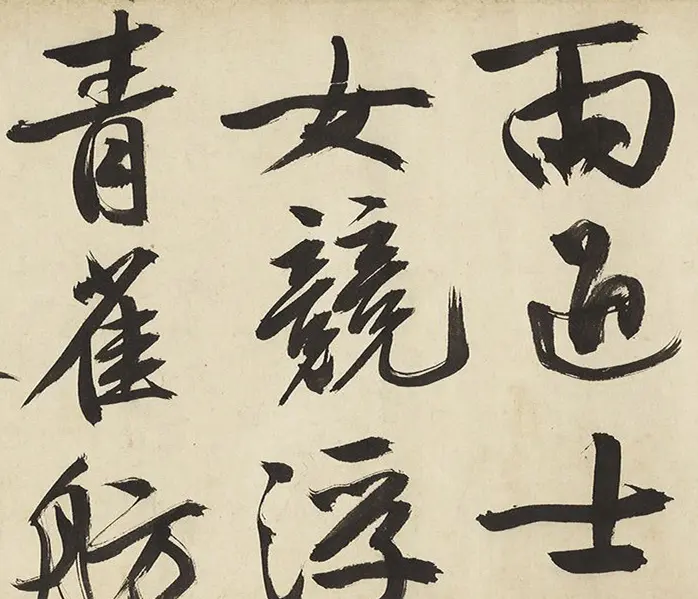 雨過士
女競浮
青雀舫